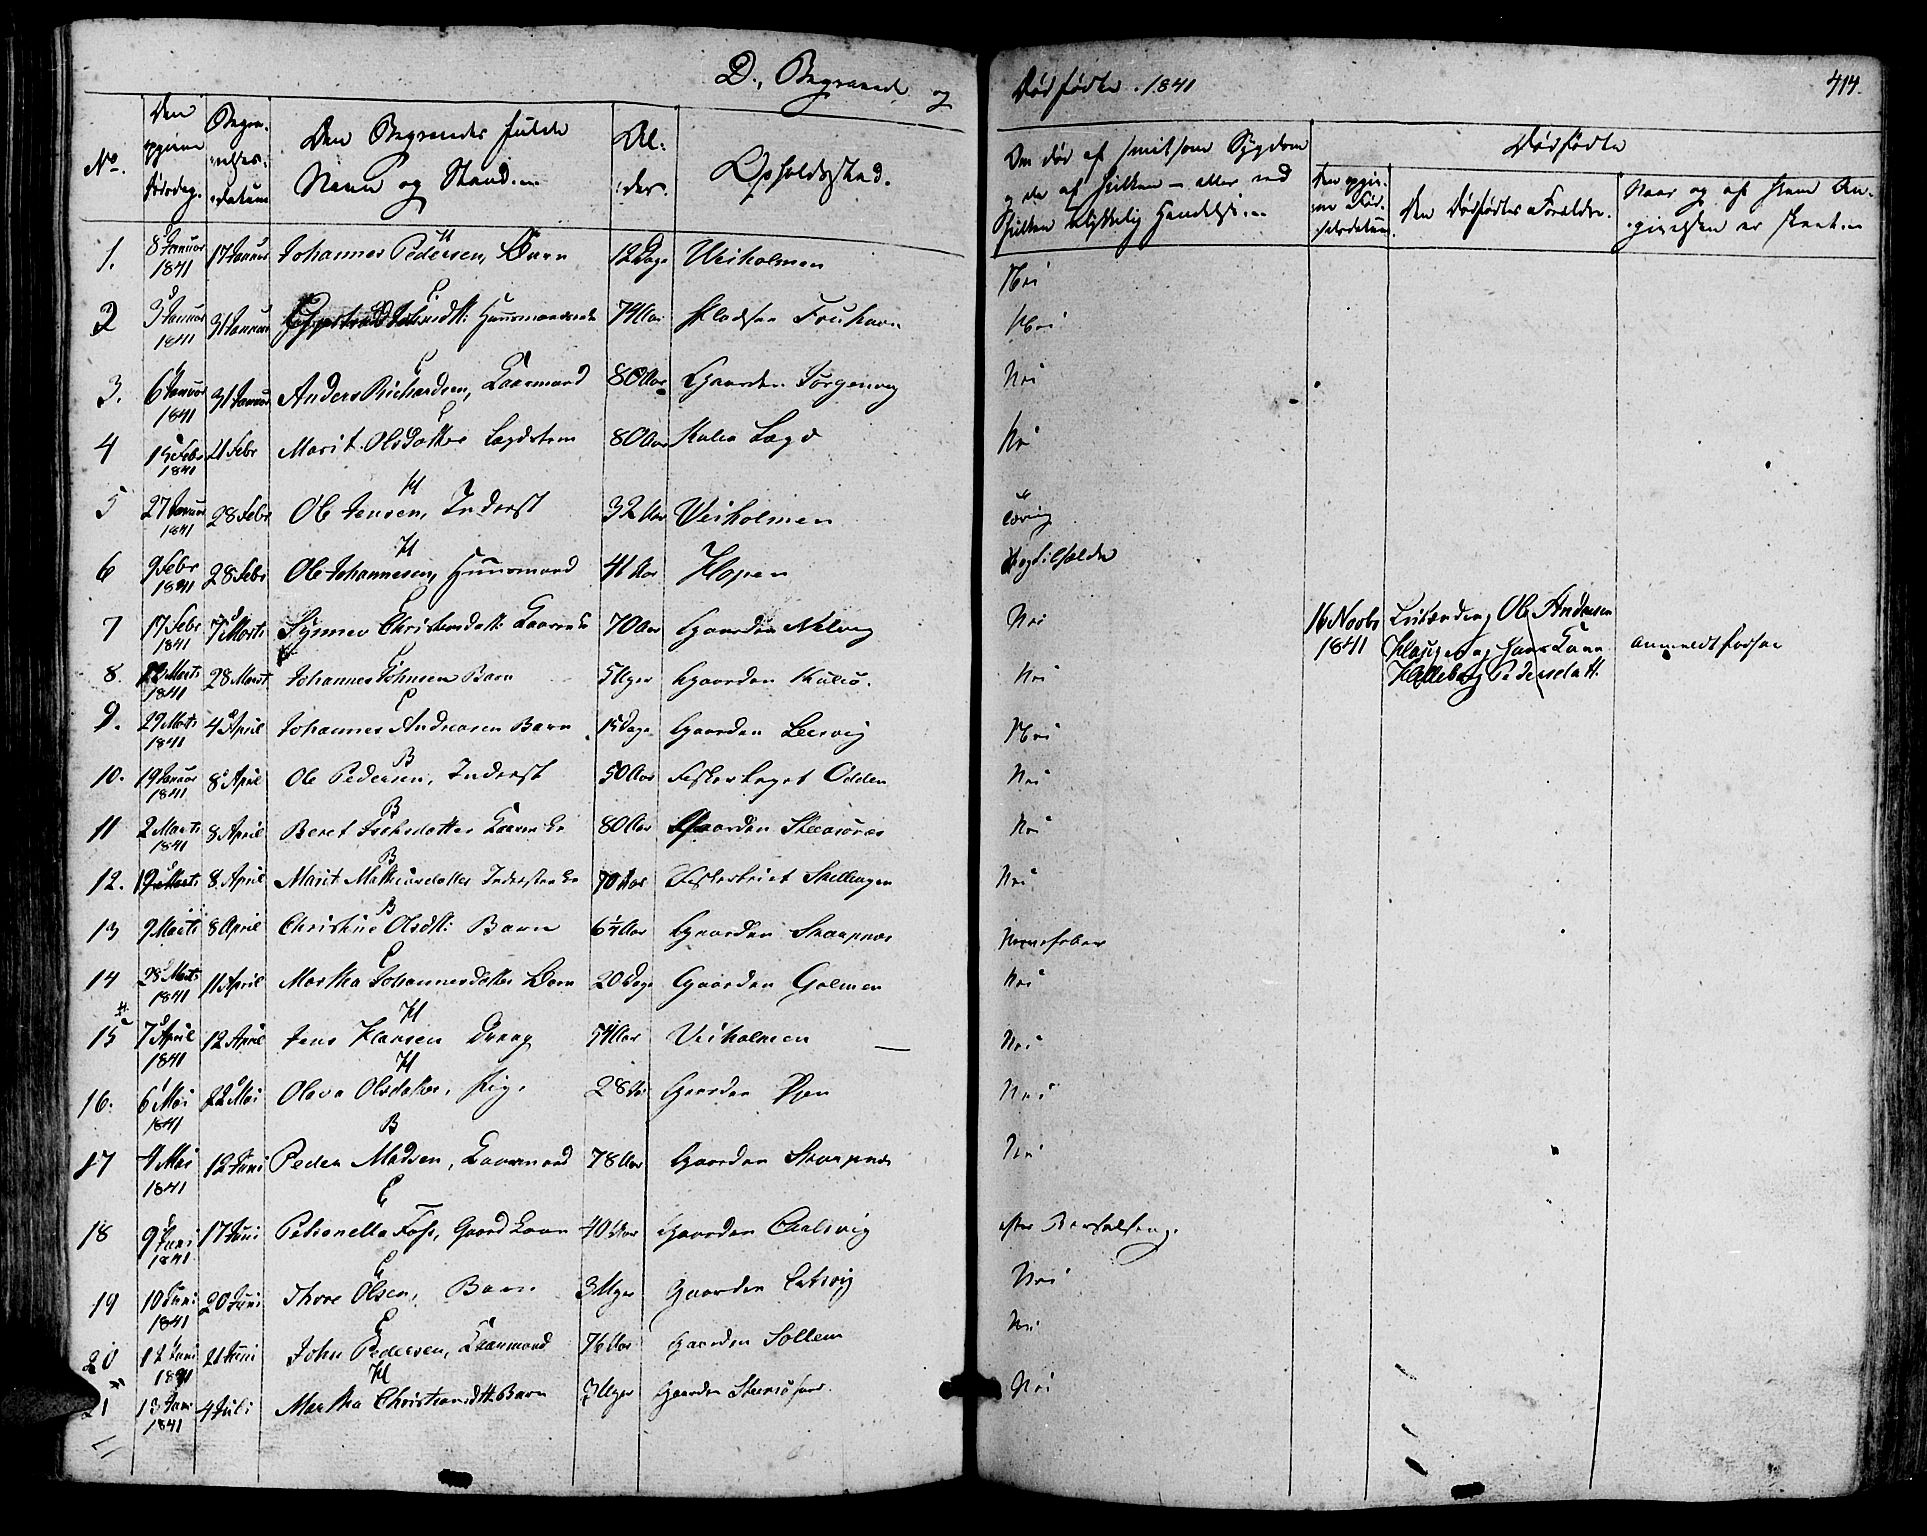 D., Begravede og
Dødfødte. 1841
414.
No.
Den opgivne Dødsdag.
Begravelses-datum
Den Begravedes fulde Navn og Stand.
Alder.
Opholdssted.
Om død af smitsom Sygdom og da af hvilken – eller ved hvilken ulykkelig Hændelse.
Dødfødte
Den opgivne Fødselsdatum.
Den Dødfødtes Forældre.
Naar og af hvem Angivelsen er skeet.
1. 8 Januar 1841 17 Januar Johannes Pedersen, Barn 12 Dage Veiholmen Nei
H
2 3 Januar 1841 31 Januar Huusmandsenke 74 Aar Pladsen Nei
E
3. 6 Januar 1841 31 Januar Anders Richardsen, Kaarmand 80 Aar Gaarden Jørgenvog Nei
E
4 15 Febr 1841 21 Febr Marit Olsdatter Lægdslem 80 Aar Kulø Lægd Nei
H
5 27 Januar 1841 28 Febr Ole Jensen, Inderst 32 Aar Veiholmen
H
6 9 Febr 1841 28 Febr Ole Johannesen, Huusmand 41 Aar Hopen
E
7 17 Febr 1841 7 Marts Synnev Christensdatt: Kaarenke 70 Aar Gaarden Nelvig Nei
16 Novbr 1841
Ole Andersen
og hans Kone
Pedersdatt:
anmeldt
E
8. 12 Marts 1841 28 Marts Johannes Johnsen Barn 5 Uger Gaarden Kulø. Nei
E
9. 29 Marts 1841 4 April Johannes Andreasen Barn 15 Dage Gaarden Leervig Nei
B
10. 19 Januar 1841 8 April Ole Pedersen, Inderst 50 Aar Fiskerleget Odden Nei
B
11 2 Marts 1841 8 April Beret Isaksdatter Kaarenke 80 Aar Gaarden Steensøens Nei
B
12. 9 Marts 8 April Marit Mathiasdatter Inderstenke 70 Aar Skallingen Nei
B
13 9 Marts 8 April Christine Olsdtt: Barn 6¼ Aar Gaarden Skarpnes Nervefeber
E
14 28 Marts 1841 11 April Martha Johannesdatter Barn 20 Dage Gaarden Holmen Nei
H
15 7 April 1841 12 April Jens Hansen Dreng 5¼ Aar Veiholmen Nei
H
16. 6 Mai 1841 22 Mai Olava Olsdatter, Pige. 28 Aar Gaarden Nei
B
17 4 Mai 1841 12 Juni Peder Madsen, Kaarmand 78 Aar Gaarden Skarpnes Nei
E
18 9 Juni 1841 17 Juni Petronella Foss, Gaardkone 40 Aar Gaarden Carlsvig efter Barselseng.
E
19 10 Juni 1841 20 Juni Thore Olsen, Barn 3 Uger Gaarden Nei
E
20 12 Juni 1841 21 Juni John Pedersen, Kaarmand 76 Aar Gaarden Sollem Nei
H
21 13 Juni 1841 4 Juli Martha Christiansdtt. Barn 3 Uger Gaarden Nei